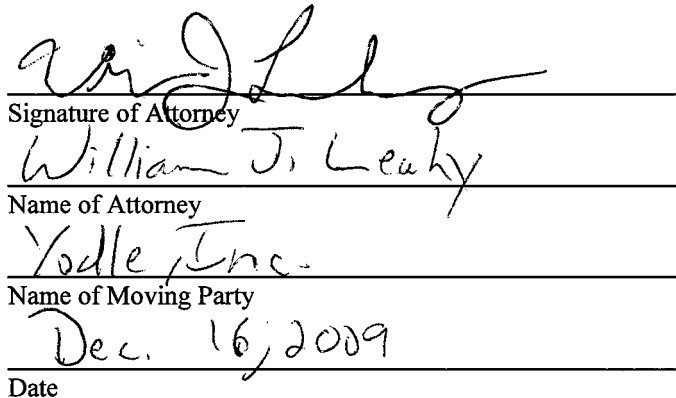 Signature of Attorney
William J. Leahy
Name of Attorney
Yodle, Inc.
Name of Moving Party
Dec. 16, 2009
Date